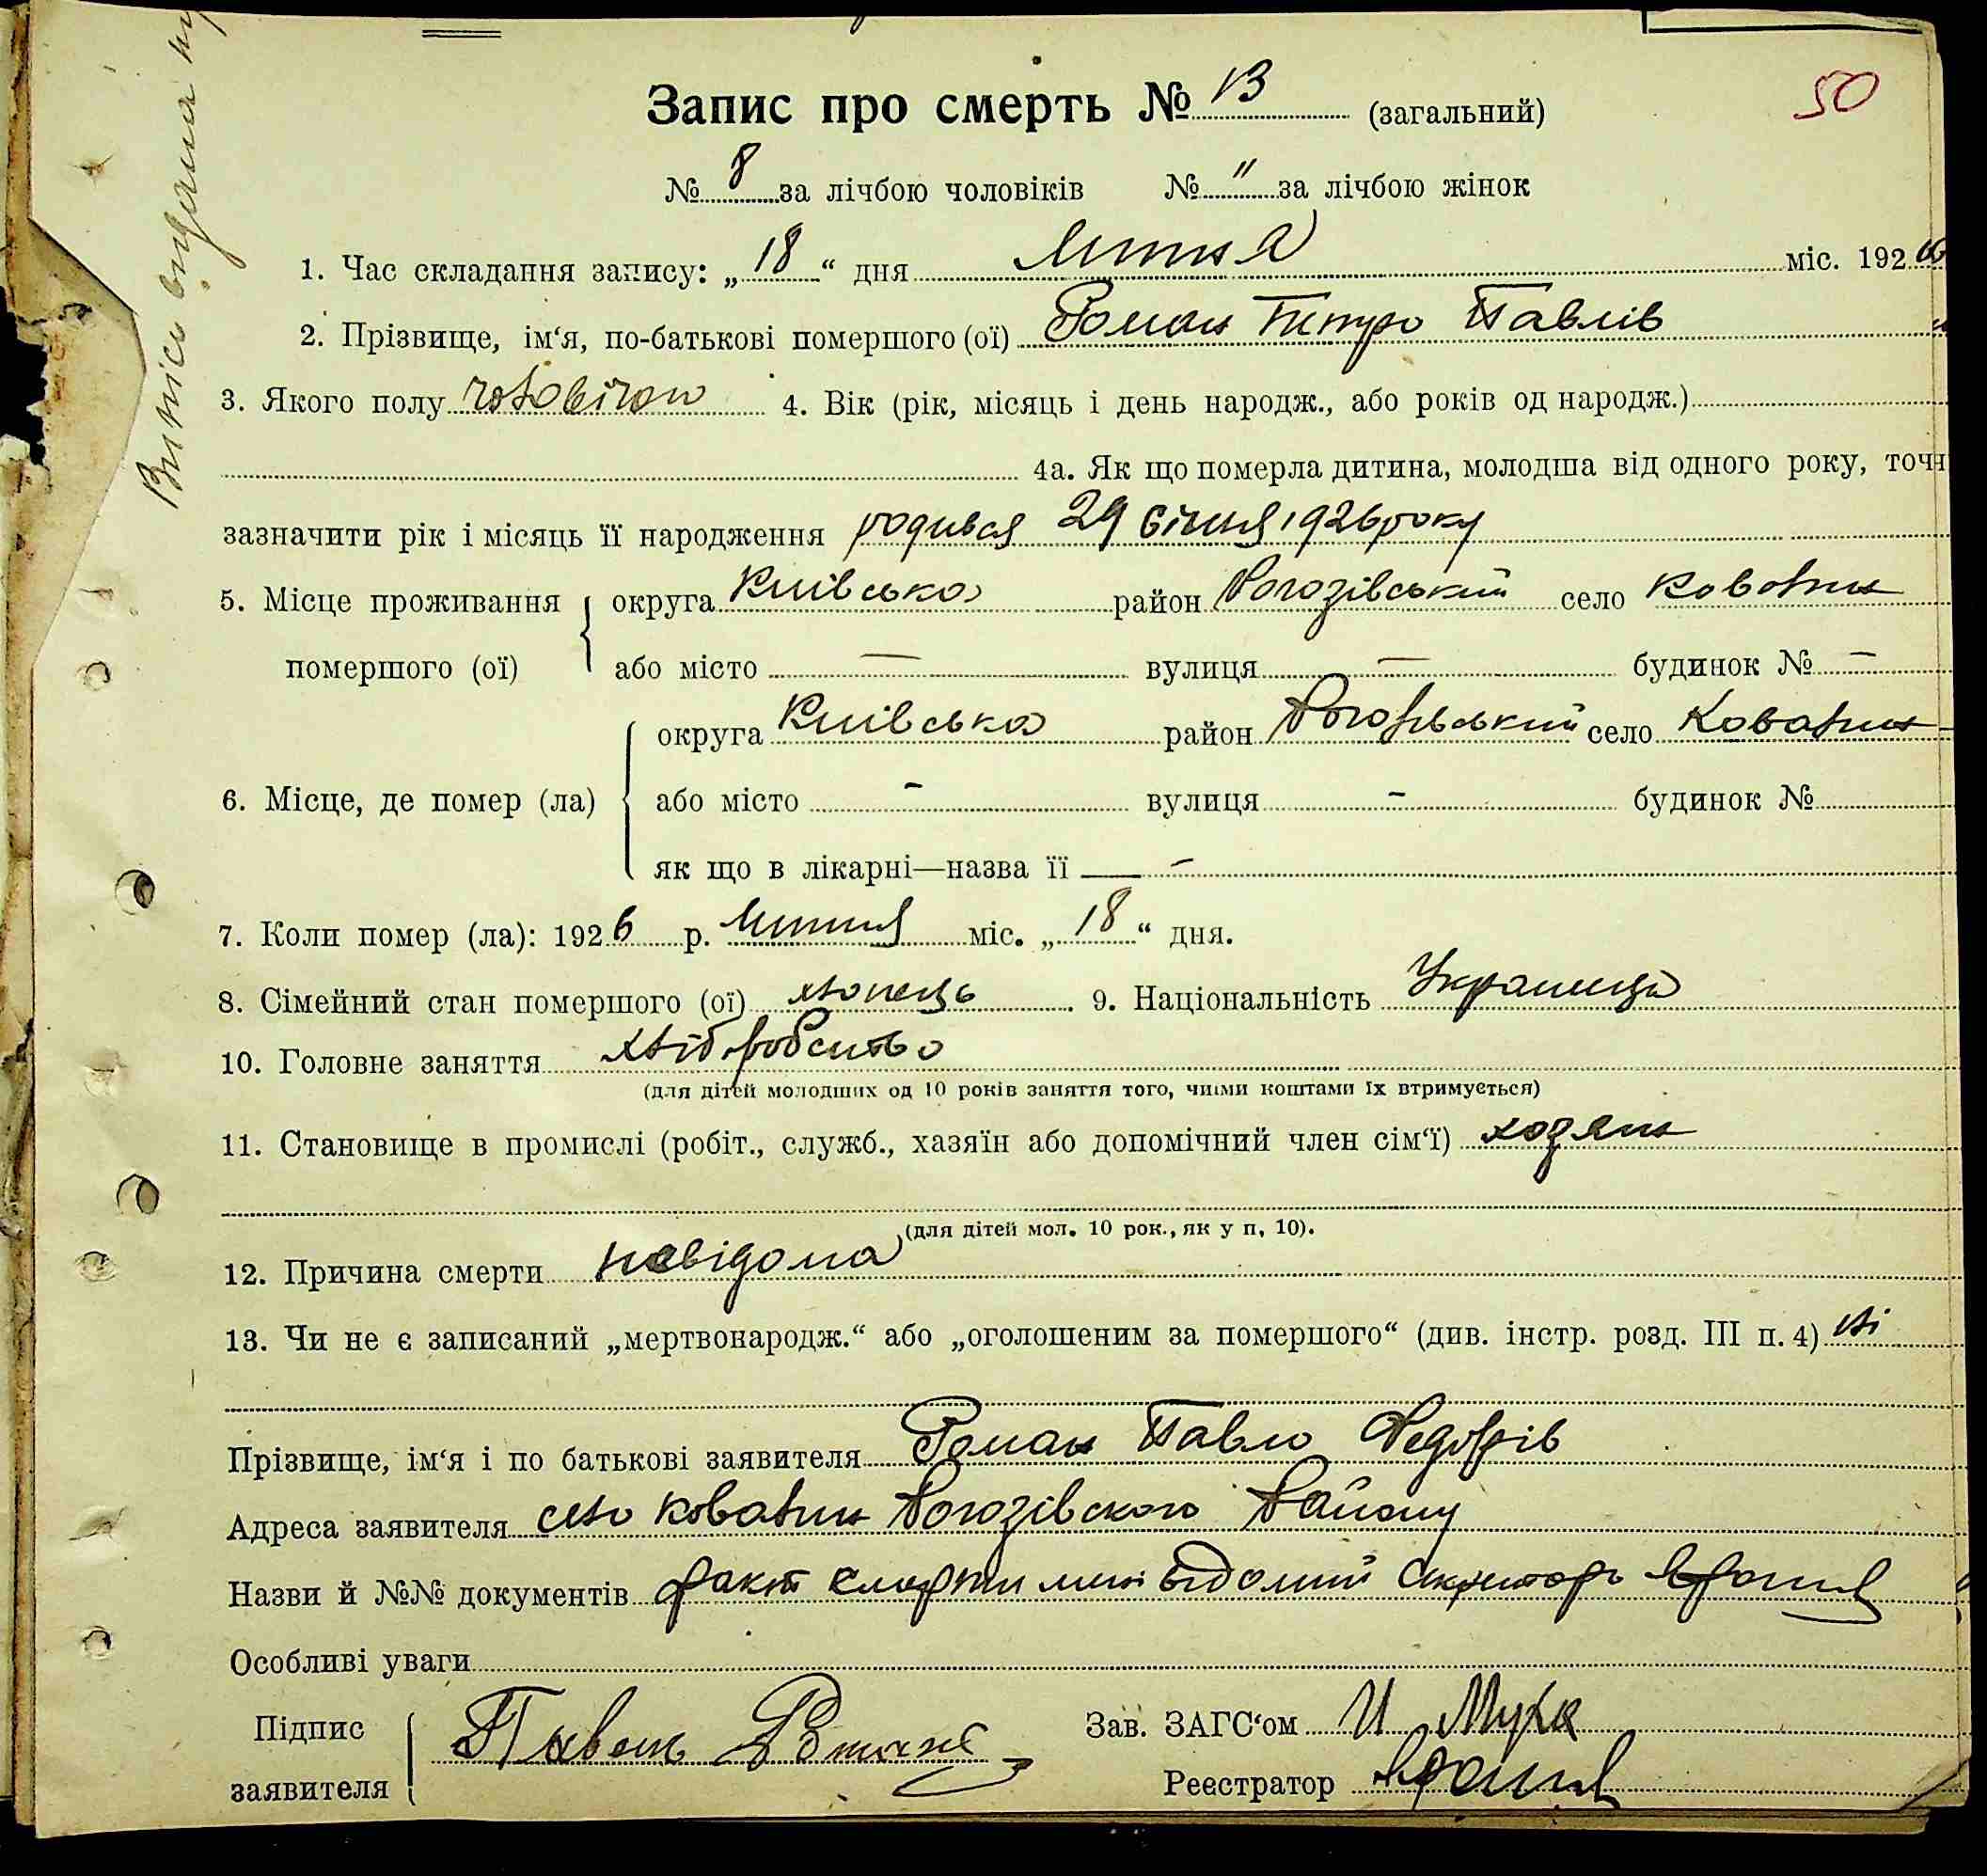 Випись видана
50
Запис про смерть № 13 (загальний)
№ 8 за лічбою чоловіків № " за лічбою жінок
1. Час складання запису: „18“ дня липня міс. 1926
2. Прізвище, ім‘я, по-батькові помершого (ої) Роман Петро Павлів
3. Якого полу чоловічом 4. Вік (рік, місяць і день народж., або років од народж.)
4а. Як що померла дитина, молодша від одного року, точн
зазначити рік і місяць її народження родився 29 Січня 1926 року
5. Місце проживання округа Київська район Рогозівський село Ковалин
помершого (ої) або місто — вулиця — будинок № —
округа Київська район Рогозівський село Ковалин
6. Місце, де помер (ла) або місто - вулиця - будинок №
як що в лікарні—назва її -
7. Коли помер (ла): 1926 р. липня міс. „18“ дня.
8. Сімейний стан помершого (ої) хлопець 9. Національність Украинець
10. Головне заняття хліборобство
(для дітей молодших од 10 років заняття того, чиїми коштами їх втримується)
11. Становище в промислі (робіт., служб., хазяїн або допомічний член сім‘ї) хозяин
(для дітей мол. 10 рок., як у п, 10).
12. Причина смерти невідома
13. Чи не є записаний „мертвонародж.“ або „оголошеним за помершого“ (див. інстр. розд. III п. 4) ні
Прізвище, ім‘я і по батькові заявителя Роман Павло Федорів
Адреса заявителя село Ковалин Рогозівского Району
Назви й №№ документів факт смерти мені відомий Секретарь
Особливі уваги
Підпис Павел Роман Зав. ЗАГС‘ом И Муха
заявителя Реєстратор